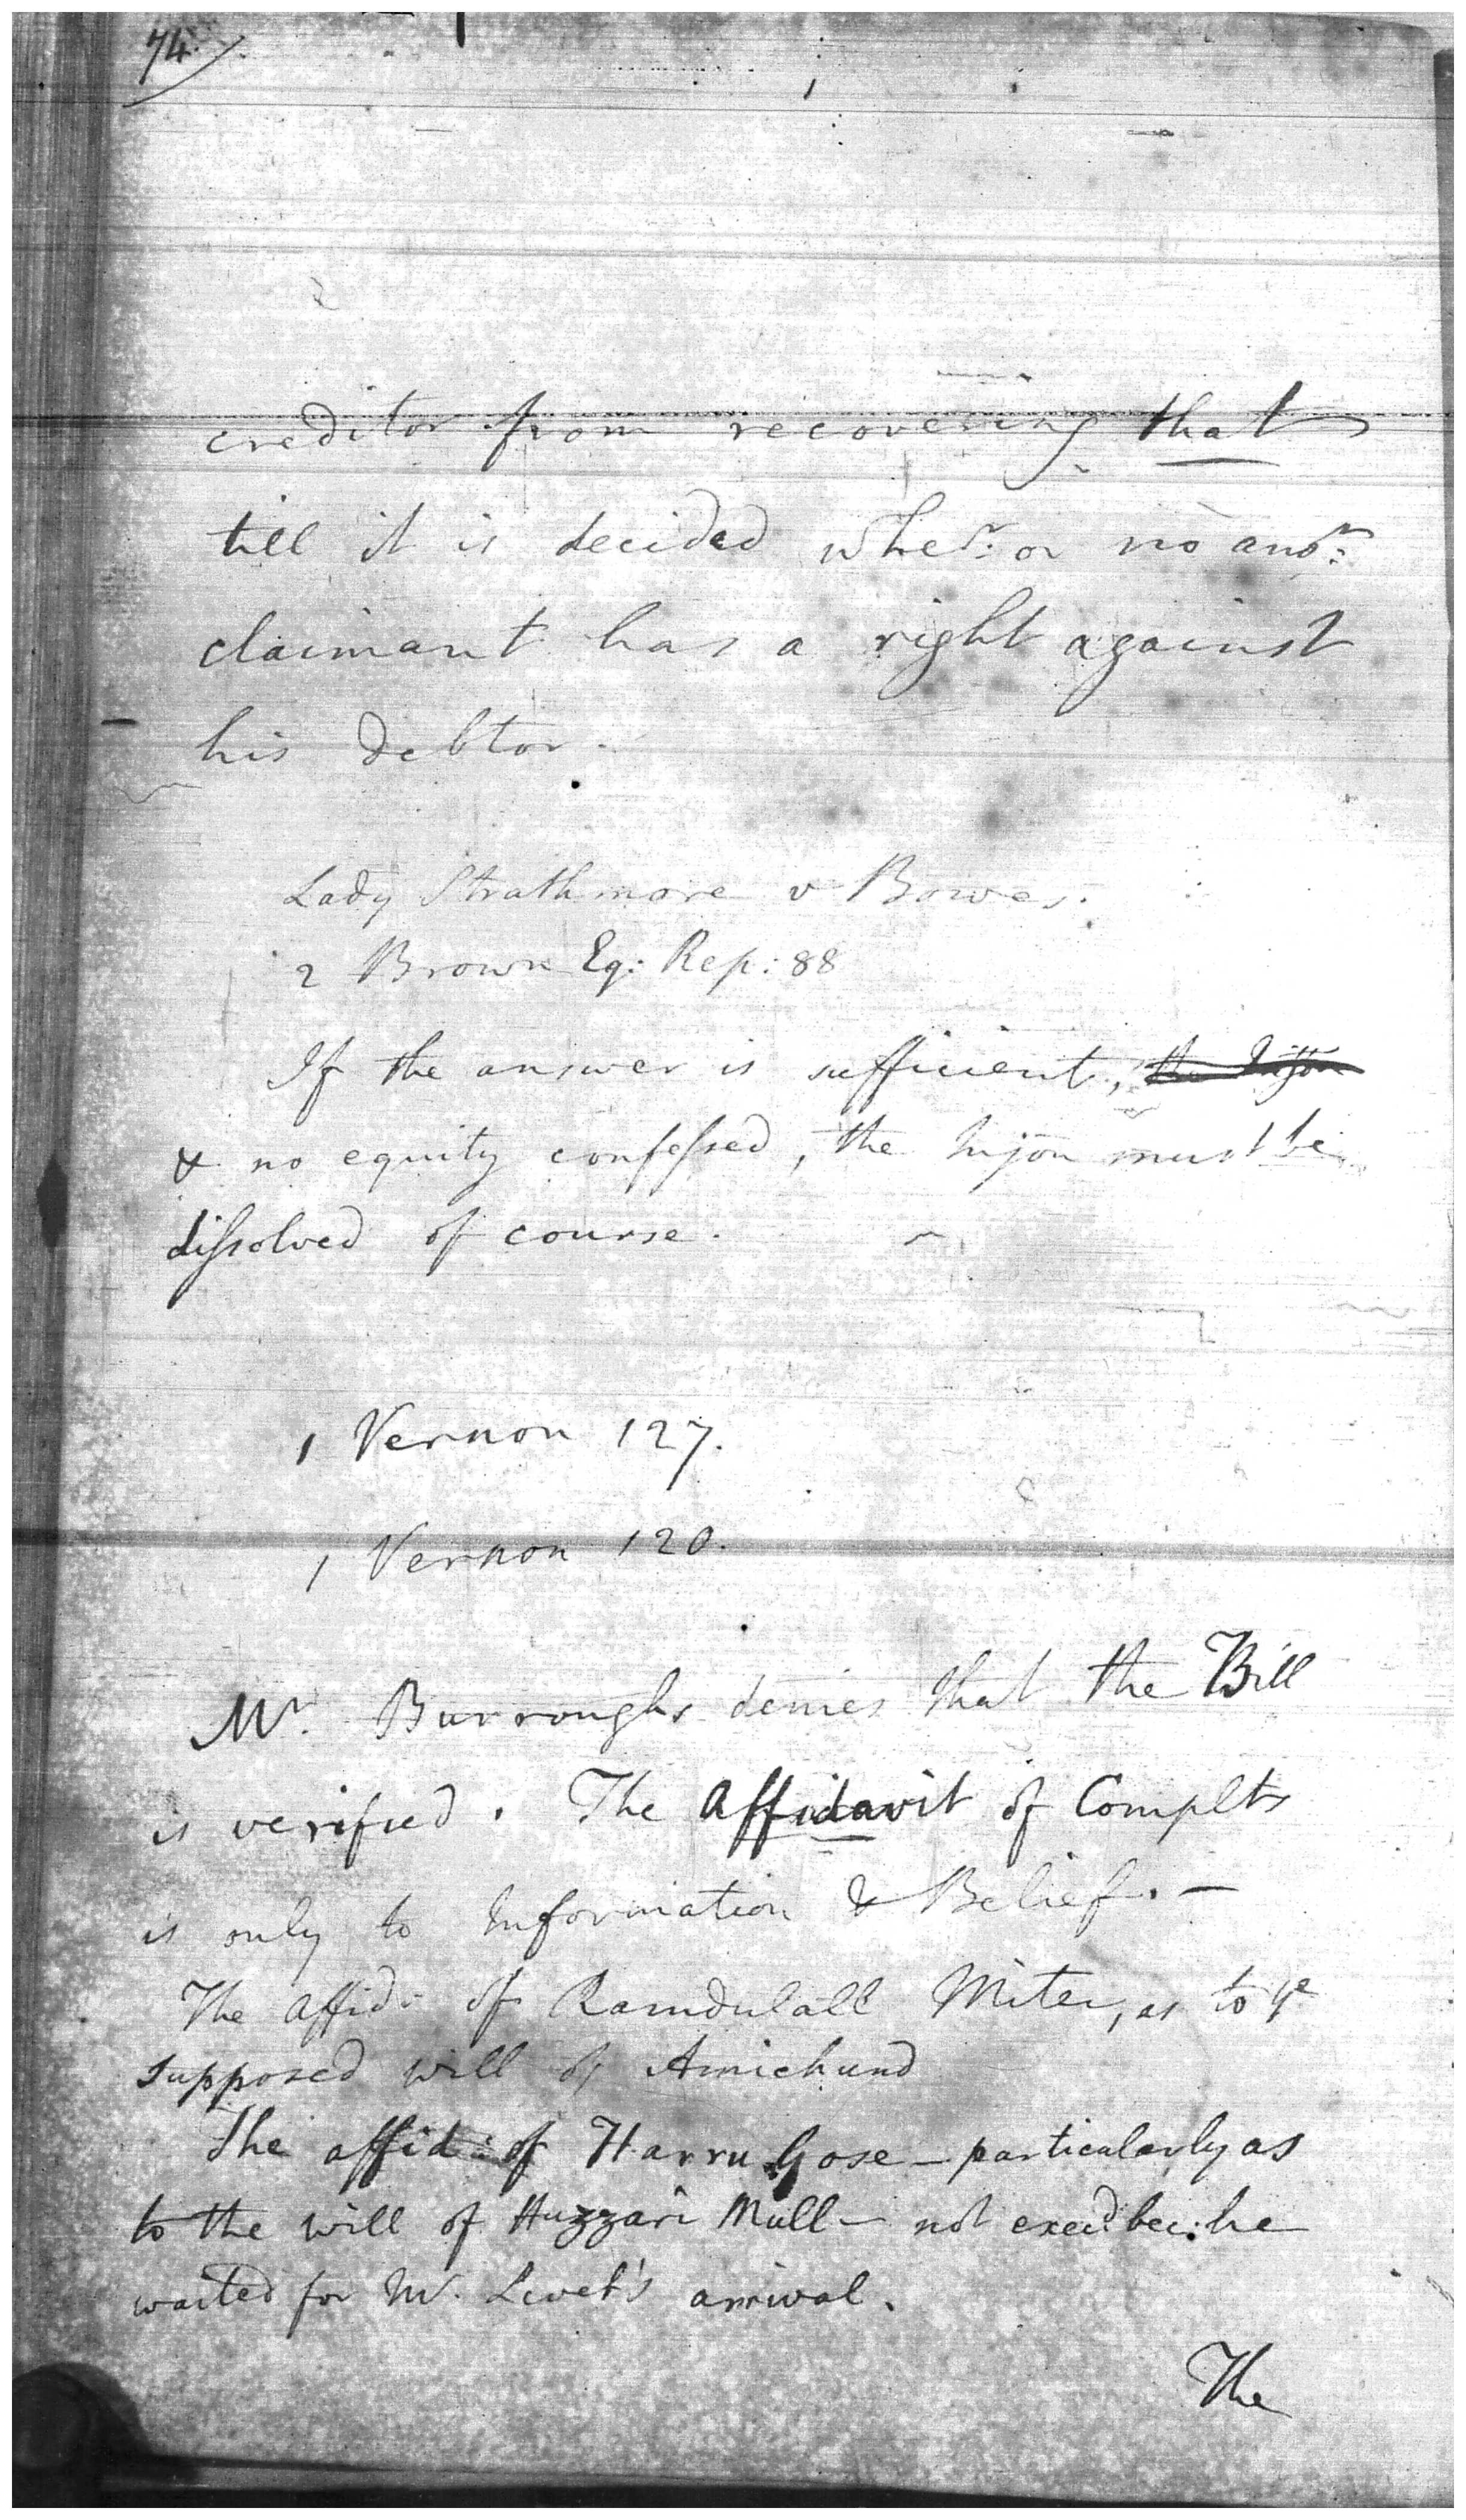 74.
creditor from recovering that
till it is decided wher: or no anor:
claimant has a right against
his debtor.
Lady Strathmore v Bowes.
2 Brown Eq: Rep: 88
If the answer is sufficient, the Injon
& no equity confessed, the Injon must be
dissolved of course.
1 Vernon 127.
1 Vernon 120.
Mr. Burroughs denies that the Bill
is verified. The Affidavit of Complts
is only to Information & Belief. —
The affid: of Ramdulall Miter, as to ye
supposed will of Amichund
The affid: of Harru Gose — particularly as
to the will of Huzzari Mull — not execd bec: he
waited for Mr. Levet's arrival.
The